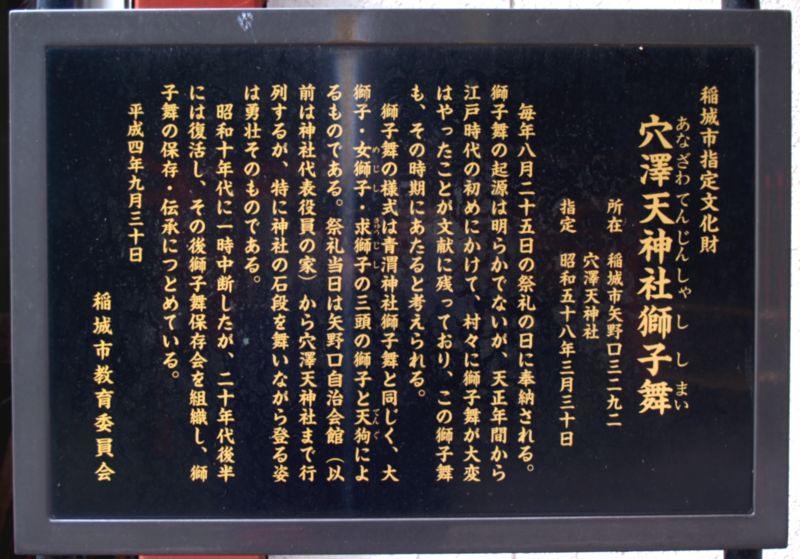 稲城市指定文化財
あなざわてんじんしゃししまい
穴澤天神社獅子舞
所在 稲城市矢野口三二九二
穴澤天神社
指定 昭和五十八年三月三十日
毎年八月二十五日の祭礼の日に奉納される。
獅子舞の起源は明らかでないが、天正年間から
江戸時代の初めにかけて、村々に獅子舞が大変
はやったことが文献に残っており、この獅子舞
も、その時期にあたると考えられる。
獅子舞の様式は青渭神社獅子舞と同じく、大
獅子・女獅子 求獅子の三頭の獅子と天狗によ
めじし
てんぐ
るものである。祭礼当日は矢野口自治会館(以
前は神社代表役員の家)から穴澤天神社まで行
列するが、特に神社の石段を舞いながら登る姿
は勇壮そのものである。
昭和十年代に一時中断したが、二十年代後半
には復活し、その後獅子舞保存会を組織し、獅
子舞の保存・伝承につとめている。
平成四年九月三十日
稲城市教育委員会